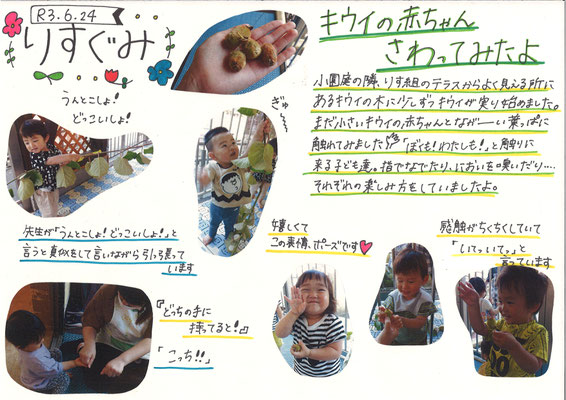 R3.6.24
りすぐみ
キウイの赤ちゃん
さわってみたよ
小園庭の隣、りす組のテラスからよく見える所に
あるキウイの木に少しずつキウイが実り始めました。
まだ小さいキウイの赤ちゃんとなが〜い葉っぱに
触れてみました「ぼくも!わたしも!」と触りに
来る子ども達。指でなでたり、においを嗅いだり…。
それぞれの楽しみ方をしていましたよ。
うんとこしょ!
どっこいしょ!
ぎゅ〜
先生が「うんとこしょ!どっこいしょ!」と
言うと真似をして言いながら引っ張って
います
嬉しくて
この表情、ポーズです
感触がちくちくしていて
「いてっいてっ」と
言っています
『どっちの手に
持ってると!』
「こっち!!」